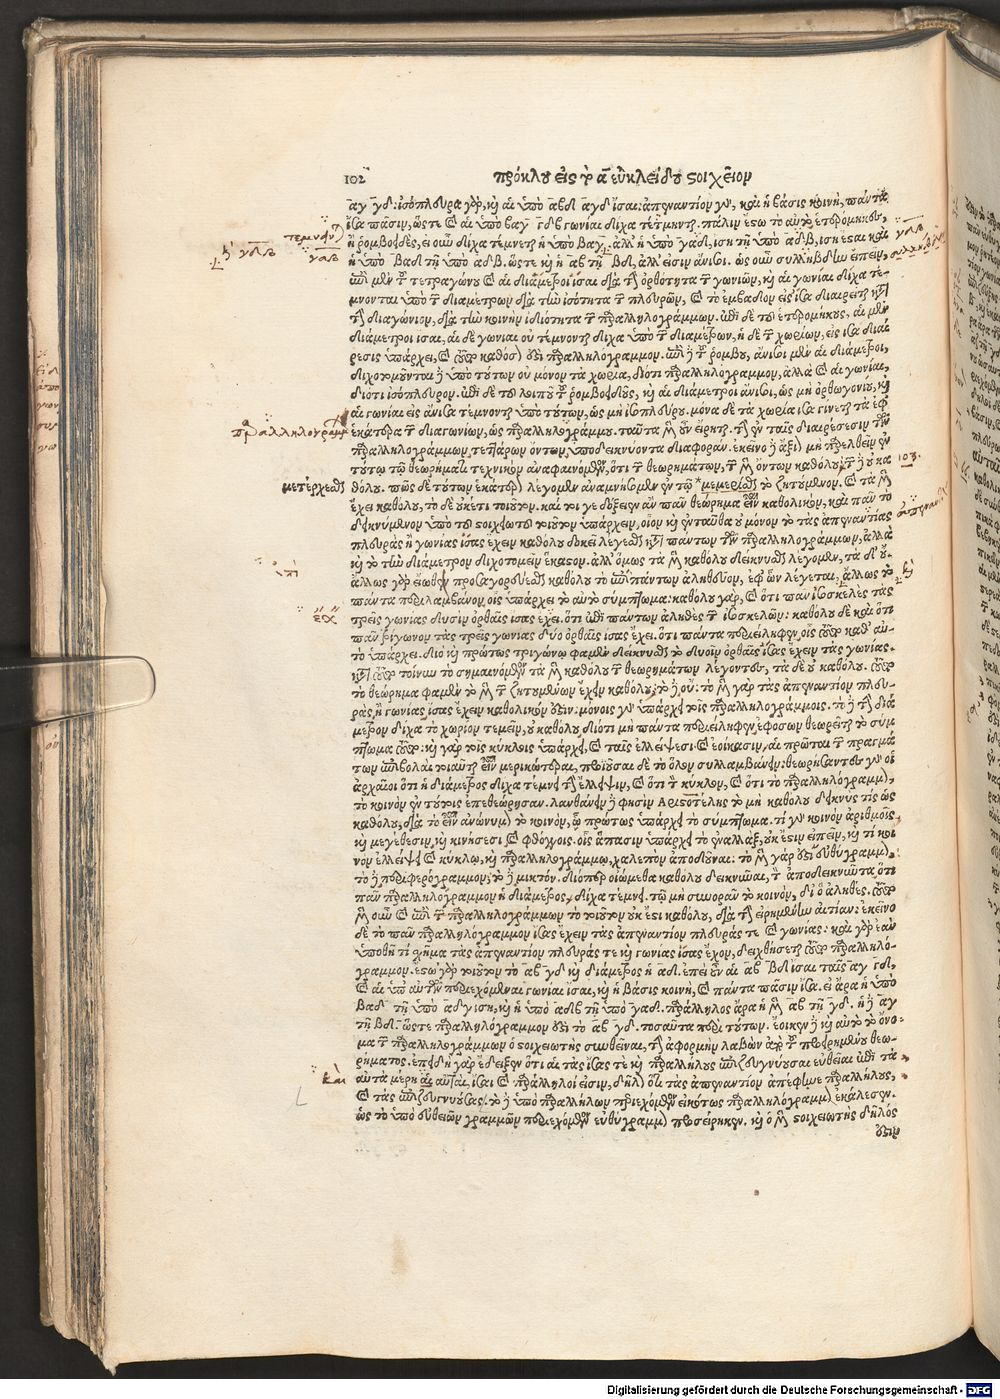 102 πρόκλου εἰς τὸ α εὐκλείδου στοιχεῖον
αγ γδ· ἰσόπλευρα γὰρ, καὶ αἱ ὑπὸ αβδ αγδ ἴσαι· ἀπεναντίον γὰρ, καὶ ἡ βάσις κοινὴ, πάντα
ἴσα πᾶσιν, ὥστε καὶ αἱ ὑπὸ βαγ γδβ γωνίαι δίχα τέτμηνται. πάλιν ἔστω τὸ αὐτὸ ἑτερόμηκες,
ἢ ῥομβοειδές, εἰ οὖν δίχα τέμνεται ἡ ὑπὸ βαγ, ἀλλ' ἡ ὑπὸ γαδ, ἴση τῇ ὑπὸ αδβ, ἴση ἔσται καὶ
ἡ ὑπὸ βαδ τῇ ὑπὸ αδβ. ὥστε καὶ ἡ αβ τῇ βδ, ἀλλ' εἰσὶν ἄνισοι. ὡς οὖν συλλήβδην εἰπεῖν,
ἐπὶ μὲν τοῦ τετραγώνου καὶ αἱ διάμετροι ἴσαι διὰ τὴν ὀρθότητα τῶν γωνιῶν, καὶ αἱ γωνίαι δίχα τέ-
μνονται ὑπὸ τῶν διαμέτρων διὰ τὴν ἰσότητα τῶν πλευρῶν, καὶ τὸ ἐμβαδὸν εἰς ἴσα διαιρεῖται κατὰ
τὴν διαγώνιον, διὰ τὴν κοινὴν ἰδιότητα τῶν παραλληλογράμμων. ἐπὶ δὲ τοῦ ἑτερομήκους, αἱ μὲν
διάμετροι ἴσαι, αἱ δὲ γωνίαι οὐ τέμνονται δίχα ὑπὸ τῶν διαμέτρων, ἡ δὲ τῶν χωρίων, εἰς ἴσα διαί-
ρεσις ὑπάρχει, καὶ τοῦτο καθόσον ἐστὶ παραλληλόγραμμον. ἐπὶ δὲ τοῦ ῥόμβου, ἄνισοι μὲν αἱ διάμετροι,
διχοτομοῦνται δὲ ὑπὸ τούτων οὐ μόνον τὰ χωρία, διότι παραλληλόγραμμον, ἀλλὰ καὶ αἱ γωνίαι,
διότι ἰσόπλευρον. ἐπὶ δὲ τοῦ λοιποῦ τοῦ ῥομβοειδοῦς, καὶ αἱ διάμετροι ἄνισοι, ὡς μὴ ὀρθογωνίου, καὶ
αἱ γωνίαι εἰς ἄνισα τέμνονται ὑπὸ τούτων, ὡς μὴ ἰσοπλεύρου. μόνα δὲ τὰ χωρία ἴσα γίνεται τὰ ἐφ'
ἑκάτερα τῶν διαγωνίων, ὡς παραλληλογράμμου. ταῦτα μὲν εἰρήσθω τὴν ἐν ταῖς διαιρέσεσιν τῶν
παραλληλογράμμων, τεττάρων ὄντων, ὑποδεικνύοντα διαφοράν. ἐκεῖνο δὲ ἄξιον μὴ παρελθεῖν ἐν
τούτῳ τῷ θεωρήματι τεχνικὸν ἀναφαινόμενον, ὅτι τῶν θεωρημάτων, τῶν μὲν ὄντων καθόλου, τῶν δὲ οὐ κα
θόλου. πῶς δὲ τούτων ἑκάτερον λέγομεν ἀναμνήσομεν ἐν τῷ *μεμερίσθαι τὸ ζητούμενον. καὶ τὰ μὲν
ἔχει καθόλου, τὸ δὲ οὐκέτι τοιοῦτον. καίτοι γε δόξειεν ἂν πᾶν θεώρημα εἶναι καθολικόν, καὶ πᾶν τὸ
δεικνύμενον ὑπὸ τοῦ στοιχειωτοῦ τοιοῦτον ὑπάρχειν, οἷον καὶ ἐνταῦθα οὐ μόνον τὸ τὰς ἀπεναντίας
πλευρὰς ἢ γωνίας ἴσας ἔχειν καθόλου δοκεῖ λέγεσθαι κατὰ πάντων τῶν παραλληλογράμμων, ἀλλὰ
καὶ τὸ τὴν διάμετρον διχοτομεῖν ἕκαστον. ἀλλ' ὅμως τὰ μὲν καθόλου δείκνυσθαι λέγομεν, τὰ δ' οὔ.
ἄλλως γὰρ εἴωθε προσαγορεύεσθαι καθόλου τὸ ἐπὶ πάντων ἀληθεῦον, ἐφ' ὧν λέγεται, ἄλλως τὸ
πάντα περιλαμβάνον, οἷς ὑπάρχει τὸ αὐτὸ σύμπτωμα: καθόλου γάρ, καὶ ὅτι πᾶν ἰσοσκελὲς τὰς
τρεῖς γωνίας δυσὶν ὀρθαῖς ἴσας ἔχει. ὅτι ἐπὶ πάντων ἀληθὲς τῶν ἰσοσκελῶν: καθόλου δὲ καὶ ὅτι
πᾶν τρίγωνον τὰς τρεῖς γωνίας δύο ὀρθαῖς ἴσας ἔχει. ὅτι πάντα περιείληφεν, οἷς τοῦτο καθ' αὑ-
τὸ ὑπάρχει. διὸ καὶ πρώτως τριγώνῳ φαμὲν δείκνυσθαι τὸ δυσὶν ὀρθαῖς ἴσας ἔχειν τὰς γωνίας.
κατὰ τοῦτο τοίνυν τὸ σημαινόμενον τὰ μὲν καθόλου τῶν θεωρημάτων λέγοντες, τὰ δὲ οὐ καθόλου. τοῦτο
τὸ θεώρημα φαμὲν τὸ μὲν τῶν ζητουμένων ἔχειν καθόλου, τὸ δ' οὔ: τὸ μὲν γὰρ τὰς ἀπεναντίον πλευ-
ράς, ἢ γωνίας ἴσας ἔχειν καθολικόν ἐστιν: μόνοις γὰρ ὑπάρχει τοῖς παραλληλογράμμοις. τὸ δὲ τὴν διά
μετρον δίχα τὸ χωρίον τεμεῖν, οὐ καθόλου διότι μὴ πάντα περιείληφεν, ἐφ' ὅσων θεωρεῖται τὸ σύμ
πτωμα τοῦτο: καὶ γὰρ τοῖς κύκλοις ὑπάρχει, καὶ ταῖς ἐλλείψεσι. καὶ ἐοίκασιν, αἱ πρῶται τῶν πραγμά
των ἐπιβολαὶ τοιαῦται εἶναι μερικώτεραι, προϊοῦσαι δὲ τὸ ὅλον συλλαμβάνειν: θεωρήσαντες γὰρ οἱ
ἀρχαῖοι ὅτι ἡ διάμετρος δίχα τέμνει τὴν ἔλλειψιν, καὶ ὅτι τὸν κύκλον, καὶ ὅτι τὸ παραλληλόγραμμον,
τὸ κοινὸν ἐν τούτοις ἐπεθεώρησαν. λανθάνειν δὲ φησὶν Ἀριστοτέλης τὸ μὴ καθόλου δεικνύς τις ὡς
καθόλου, διὰ τὸ εἶναι ἀνώνυμον τὸ κοινόν, ᾧ πρώτως ὑπάρχει τὸ σύμπτωμα. τί γὰρ κοινὸν ἀριθμοῖς,
καὶ μεγέθεσιν, καὶ κινήσεσι καὶ φθόγγοις. οἷς ἅπασιν ὑπάρχει τὸ ἐναλλάξ, οὐκ ἔστιν εἰπεῖν, καὶ τί κοι
νὸν ἐλλείψει καὶ κύκλῳ, καὶ παραλληλογράμμῳ, χαλεπὸν ἀποδοῦναι: τὸ μὲν γάρ ἐστι εὐθύγραμμον,
τὸ δὲ περιφερόγραμμον, τὸ δὲ μικτόν. διόπερ οἰώμεθα καθόλου δεικνύναι, τὸν ἀποδεικνῦντα ὅτι
πᾶν παραλληλόγραμμον ἡ διάμετρος δίχα τέμνει. τῷ μὴ συνορᾶν τὸ κοινόν, δι' ὃ ἀληθές. τοῦτο
μὲν οὖν καὶ ἐπὶ τῶν παραλληλογράμμων τὸ τοιοῦτον οὐκ ἔστι καθόλου, διὰ τὴν εἰρημένην αἰτίαν: ἐκεῖνο
δὲ τὸ πᾶν παραλληλόγραμμον ἴσας ἔχειν τὰς ἀπεναντίον πλευράς τε καὶ γωνίας: καὶ γὰρ ἐὰν
ὑποθῇ τι σχῆμα τὰς ἀπεναντίον πλευράς τε καὶ γωνίας ἴσας ἔχον, δειχθήσεται τοῦτο παραλληλό-
γραμμον. ἔστω γὰρ τοιοῦτον τὸ αβ γδ καὶ διάμετρος ἡ αδ. ἐπεὶ οὖν αἱ αβ βδ ἴσαι ταῖς αγ γδ,
καὶ αἱ ὑπ' αὐτῶν περιεχόμεναι γωνίαι ἴσαι, καὶ ἡ βάσις κοινή, καὶ πάντα πᾶσιν ἴσα. εἰ ἄρα ἡ ὑπὸ
βαδ τῇ ὑπὸ αδγ ἴση, καὶ ἡ ὑπὸ αδβ τῇ ὑπὸ γαδ. παράλληλος ἄρα ἡ μὲν αβ τῇ γδ. ἡ δὲ αγ
τῇ βδ. ὥστε παραλληλόγραμμον ἐστὶ τὸ αβ γδ. τοσαῦτα περὶ τούτων. ἔοικεν δὲ καὶ αὐτὸ τὸ ὄνο-
μα τῶν παραλληλογράμμων ὁ στοιχειωτὴς συνθεῖναι, τὴν ἀφορμὴν λαβὼν ἀπὸ τοῦ προειρημένου θεω-
ρήματος. ἐπειδὴ γὰρ ἔδειξεν ὅτι αἱ τὰς ἴσας τε καὶ παραλλήλους ἐπιζευγνύουσαι εὐθεῖαι ἐπὶ τὰ
αὐτὰ μέρη αἱ αὐταί, ἴσαι καὶ παράλληλοί εἰσιν, δῆλον ὅτι τὰς ἀπεναντίον ἀπέφηνε παραλλήλους,
καὶ τὰς ἐπιζευγνυούσας. τὸ δὲ ὑπὸ παραλλήλων περιεχόμενον εἰκότως παραλληλόγραμμον ἐκάλεσεν.
ὡς τὸ ὑπὸ εὐθειῶν γραμμῶν περιεχόμενον εὐθύγραμμον προσείρηκεν. καὶ ὁ μὲν στοιχειωτὴς δῆλός
ἐστιν
μετέρχεσθαι
παραλληλόγραμμ
103.
καὶ
Digitalisierung gefördert durch die Deutsche Forschungsgemeinschaft - DFG